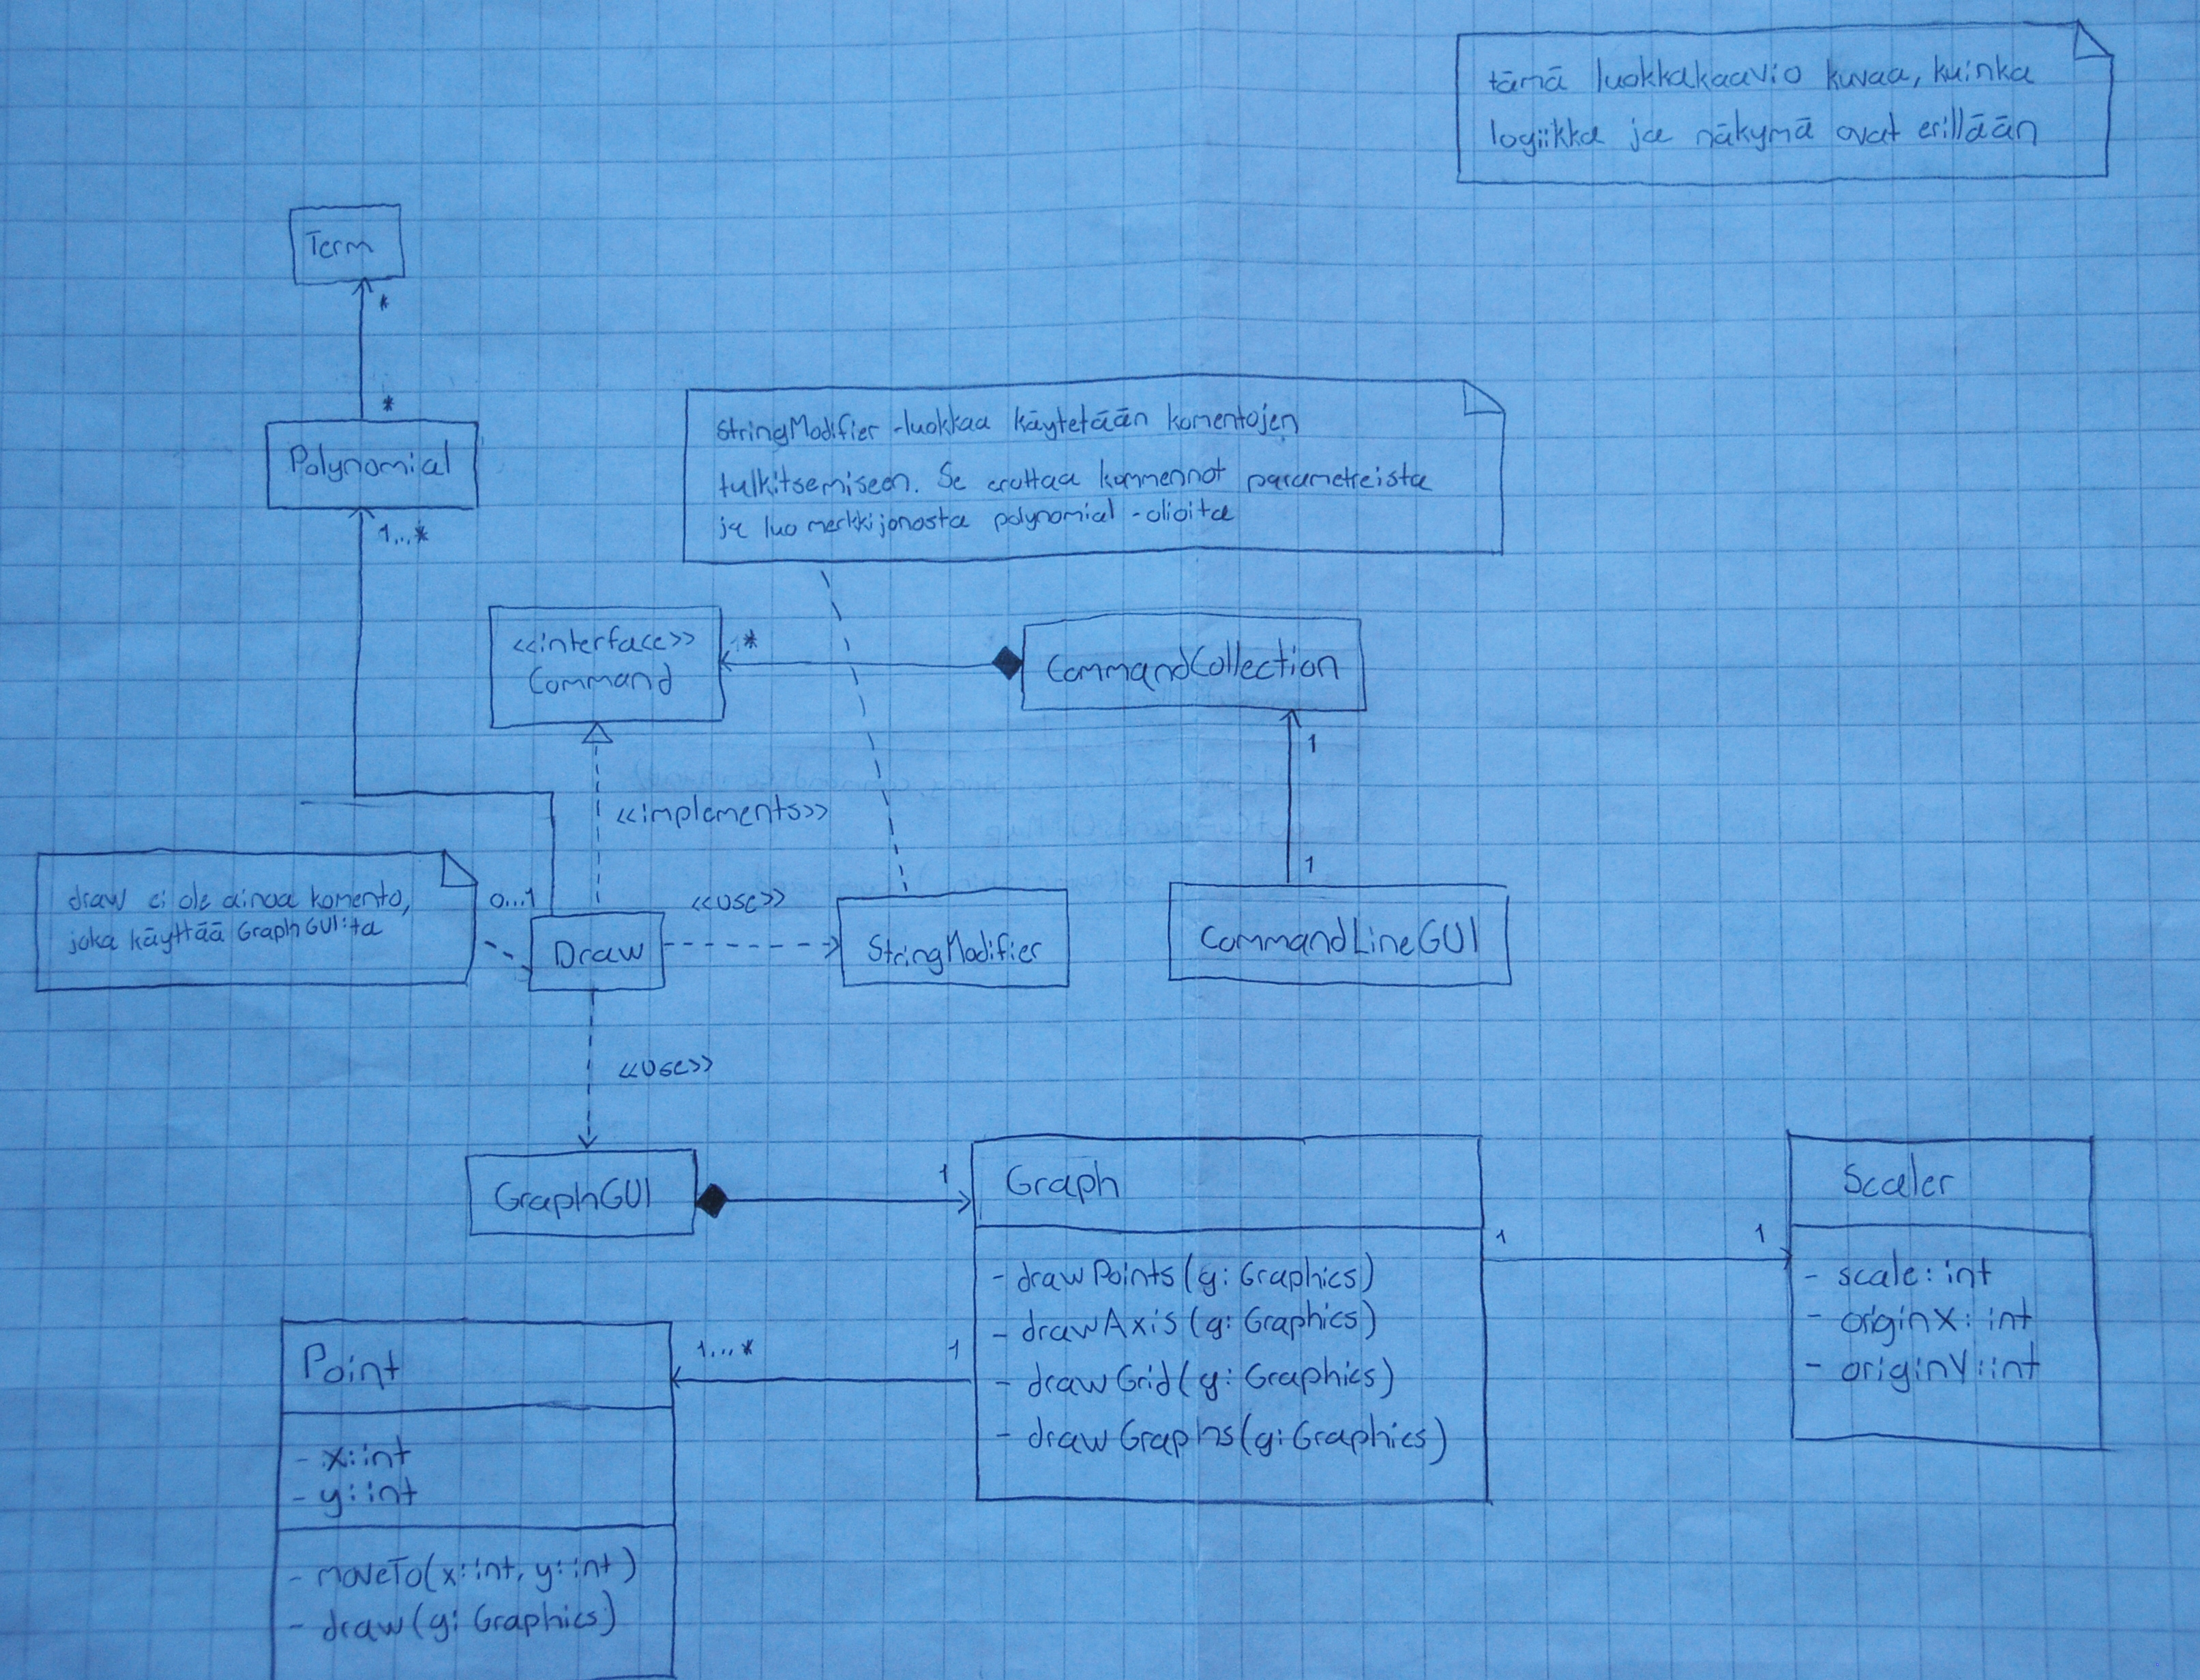 tämä luokkakaavio kuvaa, kuinka
logiikka ja näkymä ovat erillään
Term
*
*
Polynomial
1...*
StringModifier -luokkaa käytetään komentojen
tulkitsemiseen. Se erottaa kommennot parametreista
ja luo merkkijonosta polynomial -olioita
<<interface>>
Command
*
CommandCollection
1
<<implements>>
1
draw ei ole ainoa komento,
joka käyttää GraphGUI:ta
0...1
Draw
<<use>>
StringModifier
CommandLineGUI
<<use>>
GraphGUI
1
Graph
- drawPoints(g: Graphics)
- drawAxis(g: Graphics)
- drawGrid(g: Graphics)
- drawGraphs(g: Graphics)
1
1
Scaler
- scale: int
- originX: int
- originY: int
1...*
1
Point
- x: int
- y: int
- moveTo(x: int, y: int)
- draw(g: Graphics)